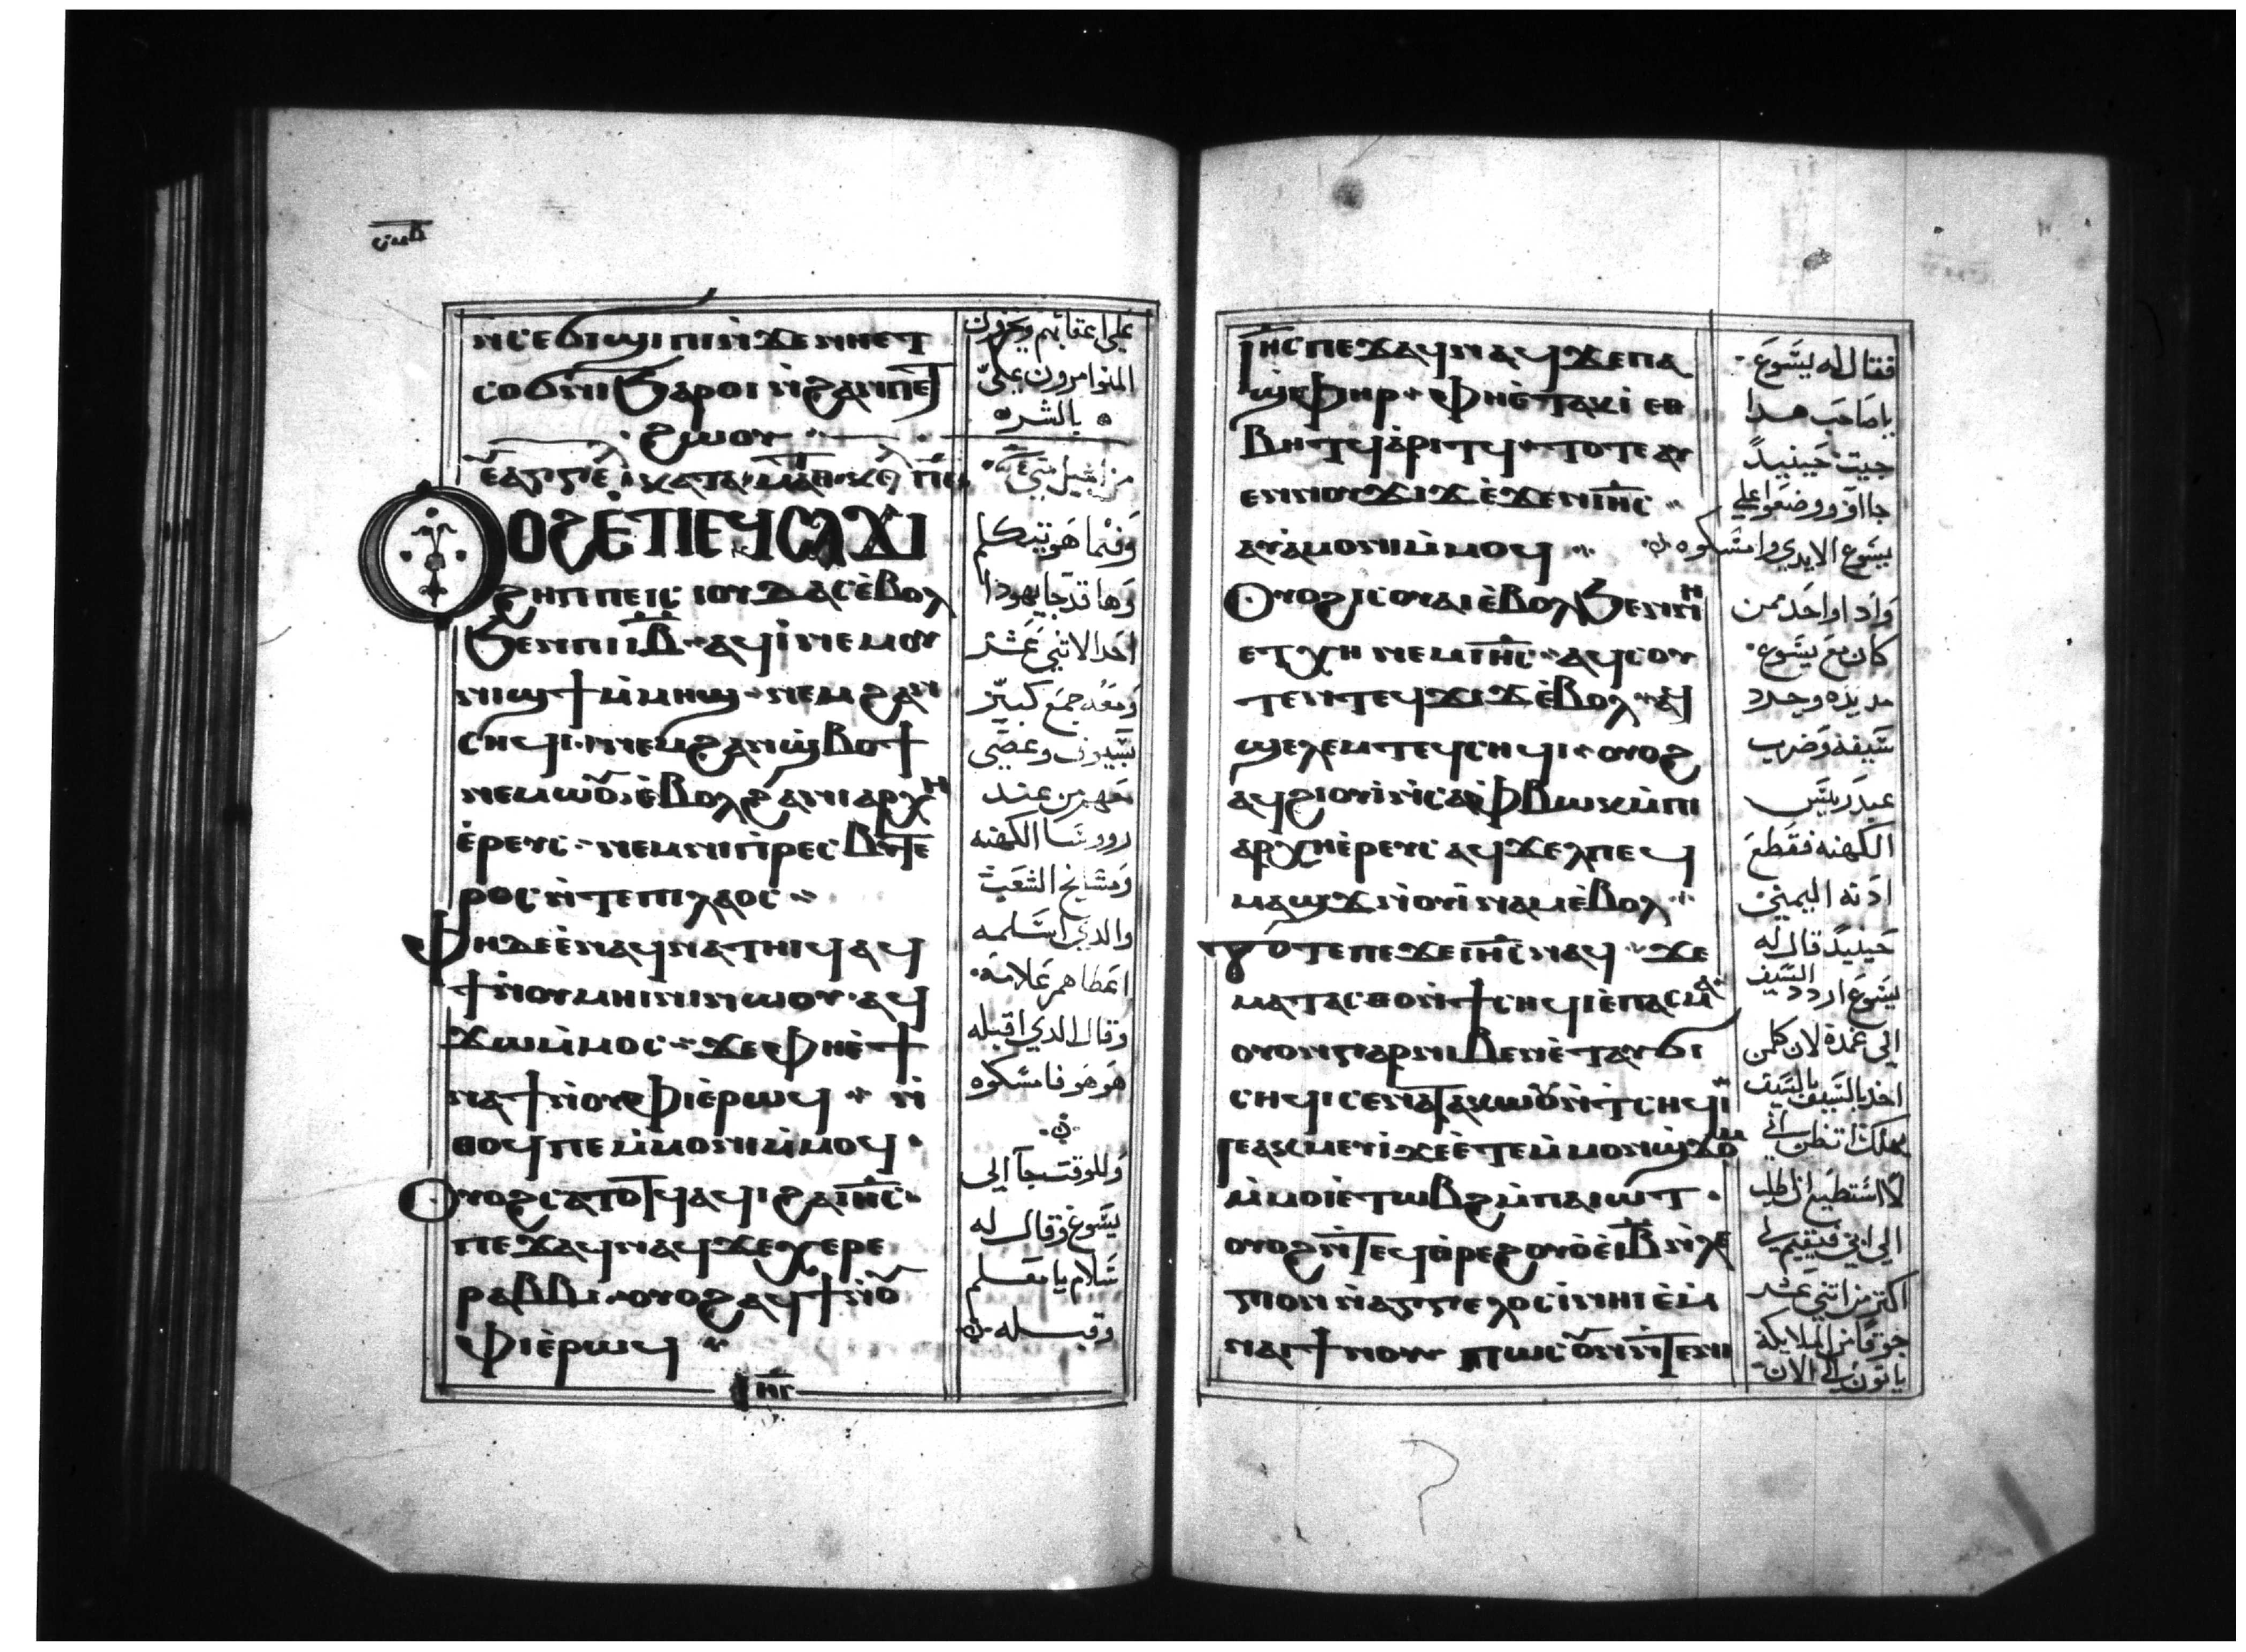 ⲛ̀ⲥⲉϭⲓϣⲓⲡⲓⲛ̀ϫⲉⲛⲏⲉⲧ
ⲥⲟϭⲛⲓϧⲁⲣⲟⲓ ⲛ̀ϩⲁⲛⲡⲉⲧ
ϩⲱⲟⲩ
ⲟϩⲉ̀ⲧⲓⲉϥⲥⲁϫⲓ
ϩⲏⲡⲡⲉⲓⲥ ⲓⲟⲩⲇⲁⲥⲉ̀ⲃⲟⲗ
ϧⲉⲛⲡⲓⲓⲃ̅ ⲁϥⲓ̀ⲛⲉⲙⲟⲩ
ⲛⲓϣϯⲙ̀ⲙⲏϣ ⲛⲉⲙϩⲁⲛ
ⲥⲏϥⲓ ⲛⲉⲙϩⲁⲛϣ̀ⲃⲟϯ
ⲛⲉⲙⲱⲟⲩⲉ̀ⲃⲟⲗϩⲁⲛⲓⲁⲣⲭⲏ
ⲉ̀ⲣⲉⲩⲥ ⲛⲉⲙⲛⲓⲡ̀ⲣⲉⲥⲃⲩⲧⲉ
ⲣⲟⲥ ⲛ̀ⲧⲉⲡⲓⲗⲁⲟⲥ
ⲫⲏⲇⲉⲉ̀ⲛⲁϥⲛⲁⲧⲏⲓϥ ⲁϥ
ϯⲛ̀ⲟⲩⲙⲏⲓⲛⲓⲛⲱⲟⲩ ⲁϥ
ϫⲱⲙ̀ⲙⲟⲥ ϫⲉⲫⲏⲉ̀ϯ
ⲛⲁϯⲛ̀ⲟⲩⲫⲓⲉ̀ⲣⲱϥ ⲛ̀
ⲑⲟϥⲡⲉⲁ̀ⲙⲟⲛⲓⲙ̀ⲙⲟϥ
ⲟⲩⲟϩⲥⲁⲧⲟⲧϥⲁϥⲓ ϩⲁⲓⲏ̅ⲥ̅
ⲡⲉϫⲁϥⲛⲁϥϫⲉⲭⲉⲣⲉ
ⲣⲁⲃⲃⲓ ⲟⲩⲟϩⲁϥϯⲛ̀ⲟⲩ
ⲫⲓⲉ̀ⲣⲱϥ
على اعقابهم ويخزون
المتوامرون علىّ
بالشره
وفيما هو يتكلم
وها قد جا يهوذا
احد الاثني عشر
ومعه جمع كبير
بسيوف وعصى
معهم من عند
رووسا الكهنه
ومشايخ الشعب
والدي اسلمه
اعطاهم علامة
وقال الدي اقبله
هو هو فامسكوه
وللوقت جآ الى
يسوع وقال له
سلام يا معلم
وقبله
ⲓⲏ̅ⲥ̅ⲡⲉϫⲁϥⲛⲁϥϫⲉⲡⲁ
ϣ̀ⲫⲏⲣ ⲫⲏⲉ̀ⲧⲁⲕⲓ ⲉⲑ
ⲃⲏⲧϥⲁ̀ⲣⲓⲧϥ ⲧⲟⲧⲉⲁⲩ
ⲉⲛⲛⲟⲩϫⲓϫⲉ̀ϫⲉⲛⲓⲏ̅ⲥ̅
ⲁⲩⲁ̀ⲙⲟⲛⲓⲙ̀ⲙⲟϥ
ⲟⲩⲟϩⲓⲥⲟⲩⲁⲓⲉ̀ⲃⲟⲗϧⲉⲛⲛⲏ
ⲉⲧⲭⲏ ⲛⲉⲙⲓⲏ̅ⲥ̅ ⲁϥⲥⲟⲩ
ⲧⲉⲛⲧⲉϥϫⲓϫⲉ̀ⲃⲟⲗ ⲁϥ
ϣⲉⲗⲉⲙⲧⲉϥⲥⲏϥⲓ ⲟⲩⲟϩ
ⲁϥϩⲓⲟⲩⲓ̀ⲛ̀ⲥⲁⲫ̀ⲃⲱⲕⲙ̀ⲡⲓ
ⲁⲣⲭⲏⲉ̀ⲣⲉⲩⲥ ⲁϥϫⲉⲗⲡⲉϥ
ⲙⲁϣϫⲛ̀ⲟⲩⲓ̀ⲛⲁⲙⲉ̀ⲃⲟⲗ
ⲧⲟⲧⲉⲡⲉϫⲉⲓⲏ̅ⲥ̅ⲛⲁϥ ϫⲉ
ⲙⲁⲧⲁⲥⲑⲟⲛ̀ϯⲥⲏϥⲓⲉ̀ⲡⲁⲥⲙⲁ
ⲟⲩⲟⲛⲅⲁⲣⲛⲓⲃⲉⲛⲉ̀ⲧⲁⲩϭⲓ
ⲥⲏϥⲓⲥⲉⲛⲁⲧⲁⲕⲱⲟⲩⲛ̀ⲧ̀ⲥⲏϥⲓ
ⲓⲉⲁⲕⲙⲉⲩⲓ̀ϫⲉⲉ̀ⲧⲉⲙ̀ⲙⲟⲛϣ̀ϫⲟⲙ
ⲙ̀ⲙⲟⲓⲉ̀ⲧⲱⲃϩⲙ̀ⲡⲁⲓⲱⲧ
ⲟⲩⲟϩⲛ̀ⲧⲉϥⲑ̀ⲣⲉϩⲟⲩⲟ̀ⲉ̀ⲓⲃ̅ⲛ̀ⲗⲉ
ⲅⲉⲱⲛⲛ̀ⲁⲅⲅⲉⲗⲟⲥⲓ̀ⲛⲏⲓ ⲉ̀ⲙ
ⲛⲁⲓϯⲛⲟⲩ ⲡⲱⲥⲟⲩⲛⲛ̀ⲧⲉⲛⲓ
فقال له يسوع
يا صاحب هدا
جيت حينيدً
جااوَ ووضعوا على
يسوع الايدي وامسكوه
واداواحد ممن
كان مع يسوع
مد يده وجرد
سيفه وضرب
عبد ريس
الكهنه فقطع
ادنه اليمنى
حينيدً قال له
يسوع اردد السيف
الى غمده لان كلمن
اخد بالسيف بالسيف
يهلك اتظن انى
لا استطيع ان اطلب
الى ابى فيقيم لى
اكتر من اتني عشر
جوقًا من الملايكة
ياتون الى الان